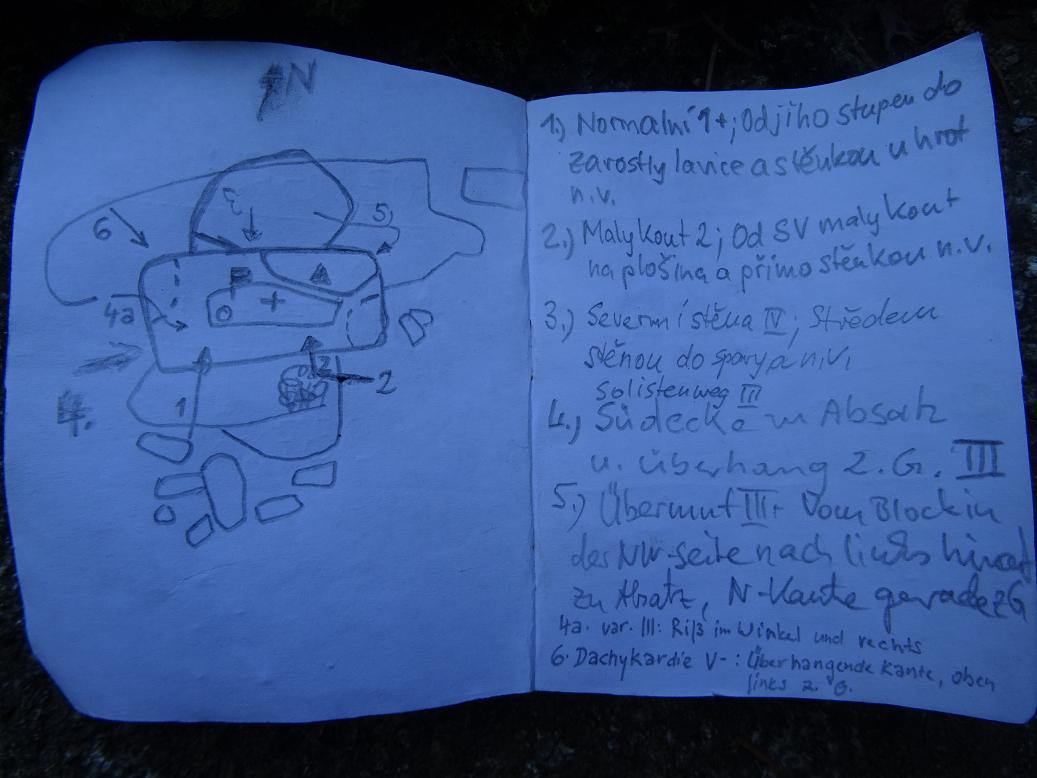 N
6
3
5)
4a
4.
1
2
1.) Normalní 1+; Od jiho stupen do
zarostly lavice a stěnkou u hrot
n.v.
2.) Maly Kout 2; Od SV maly kout
na plošina a přimo stěnkou n.v.
3.) Severní stěna IV; Středem
stěnou do spary a n.v.
solistenweg III
4.) Südecke m Absatz
u. überhang z. G. III
5.) Übermut III+ Vom Block in
der NW-seite nach links
zu Absatz, N-Kante gerade z G
4a. var. III: Riß im Winkel und rechts
6. Dachykardie V- : Überhangende Kante, oben
links z. G.